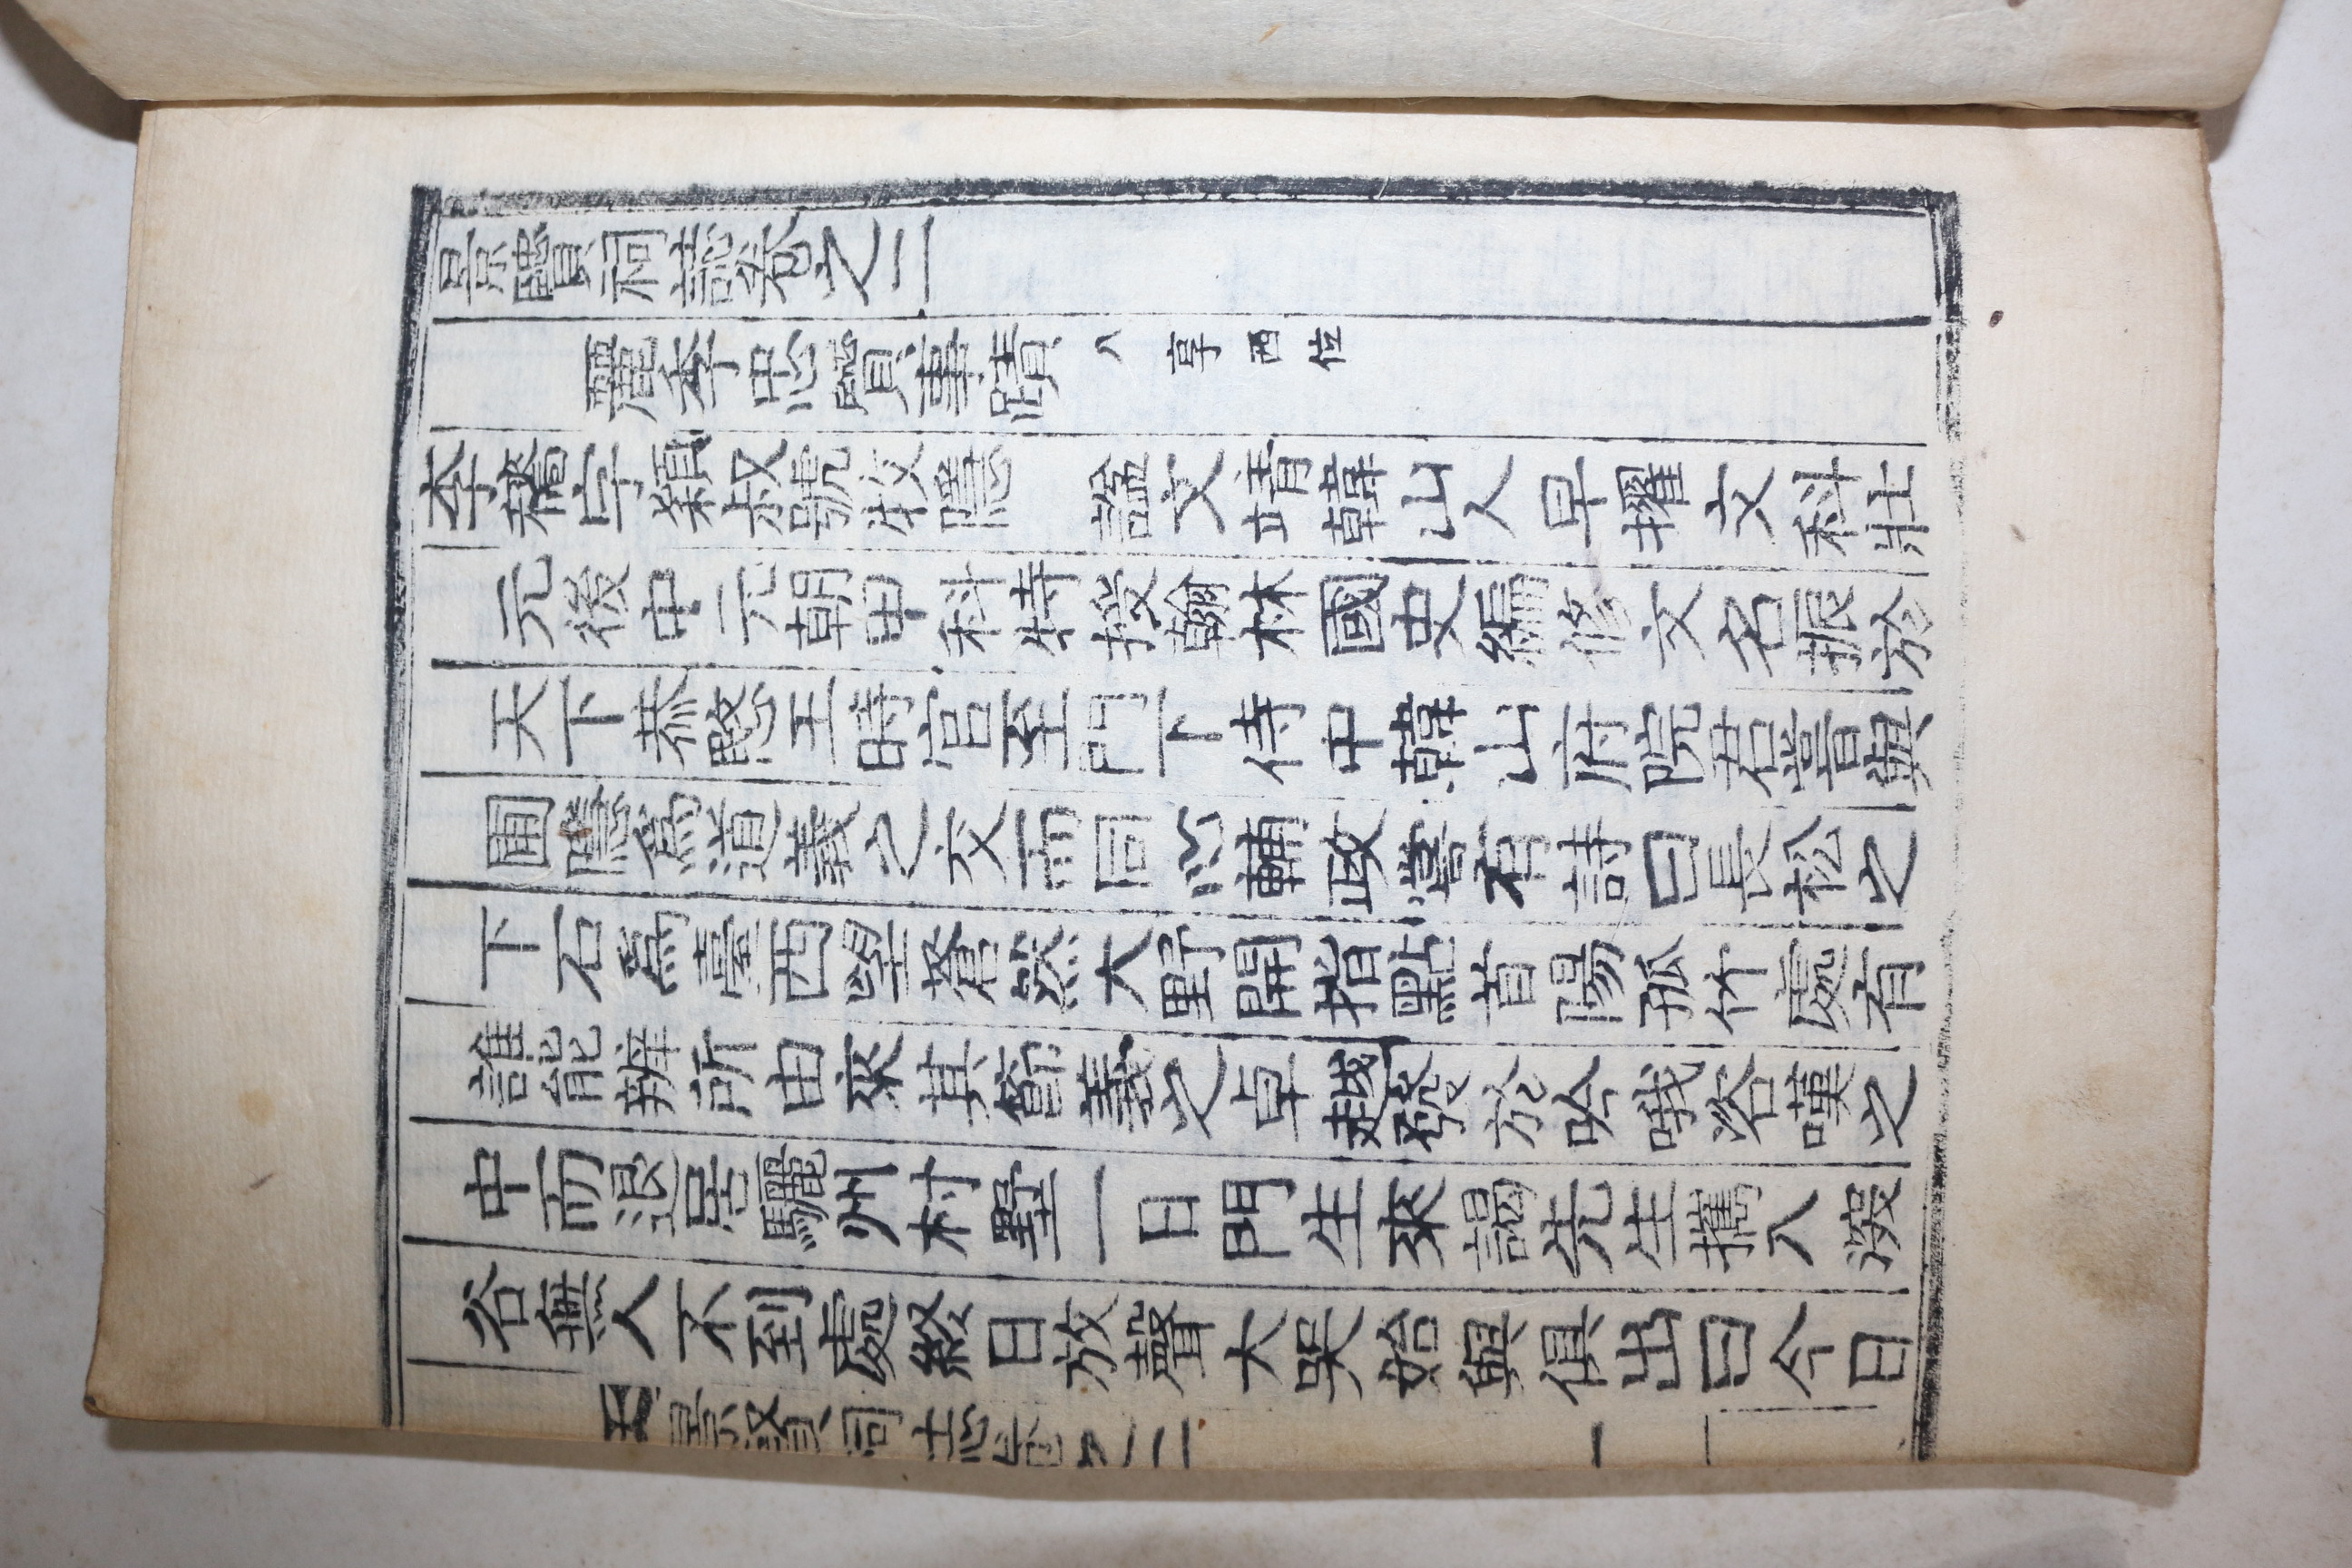 景賢祠誌卷之二
麗季忠賢事蹟 八享西位
李穡字穎叔號牧隱 謚文靖韓山人早擢文科壯
元後中元朝申科特授翰林國史編修文名振於
天下恭愍王時官至門下侍中韓山府院君嘗與
圃隱爲道義之交而同心輔政嘗有詩曰長松之
下石爲臺西望蒼然大野開指點首陽孤竹處有
誰能辨所由來其節義之卓越發於吟哦咨嘆之
中而退居驪州村墅一日門生來謁先生攜入深
谷無人不到處終日放聲大哭始與俱出曰今日
景賢祠誌卷之二 一